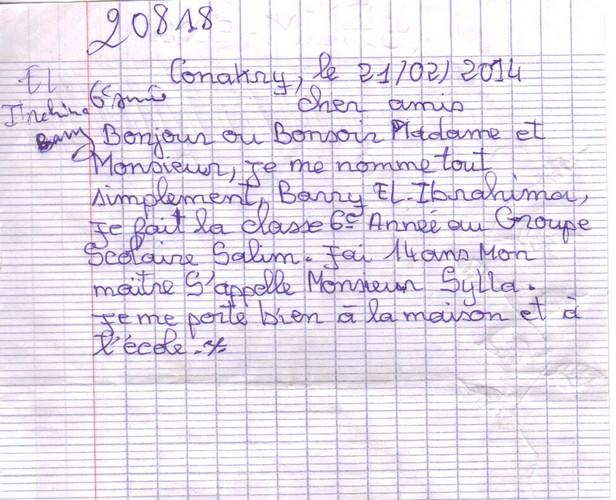 20818
Conakry, le 21/02/2014
El
6e année
cher amis
Barry
Bonjour ou Bonsoir Madame et
Monsieur, je me nomme tout
simplement, Barry EL-Ibrahima,
je fait la classe 6e Année au Groupe
Scolaire Salim. J'ai 14 ans Mon
maitre S'appelle Monsieur Sylla.
je me porte bien à la maison et à
l'école.